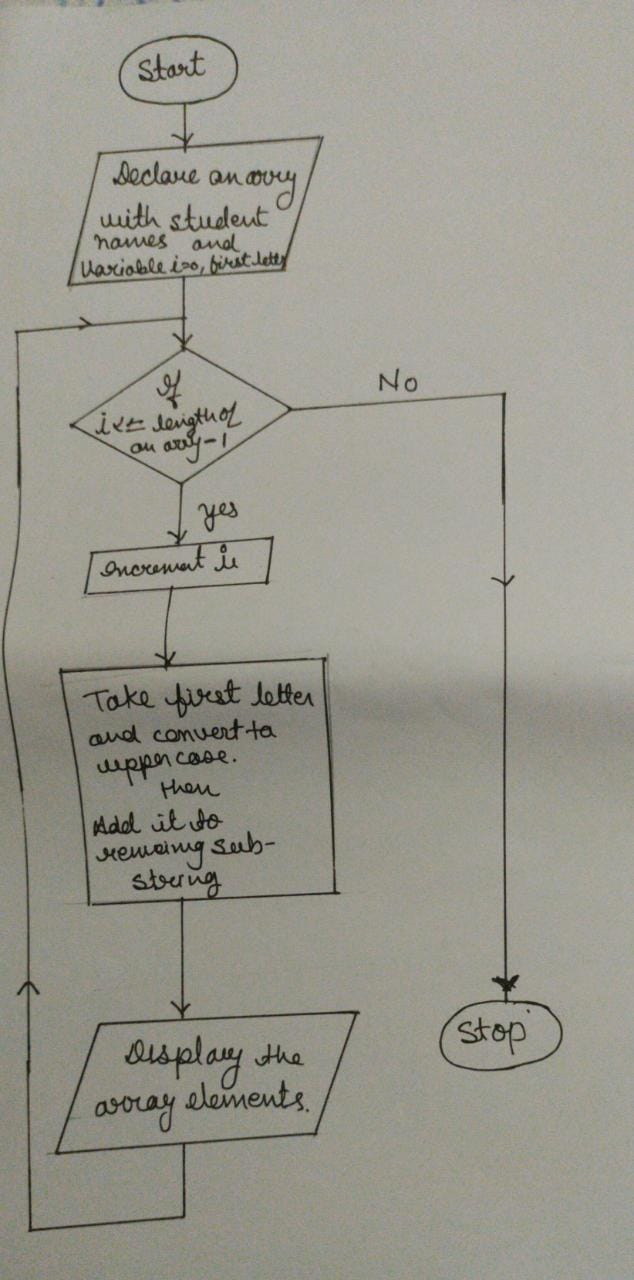 Start
Declare an arry
with student
names and
Variable i=0, first letter
If
i<= length of
an arry-1
No
yes
Increment i
Take first letter
and convert to
upper case.
then
Add it to
remaing sub-
string
Display the
array elements.
Stop